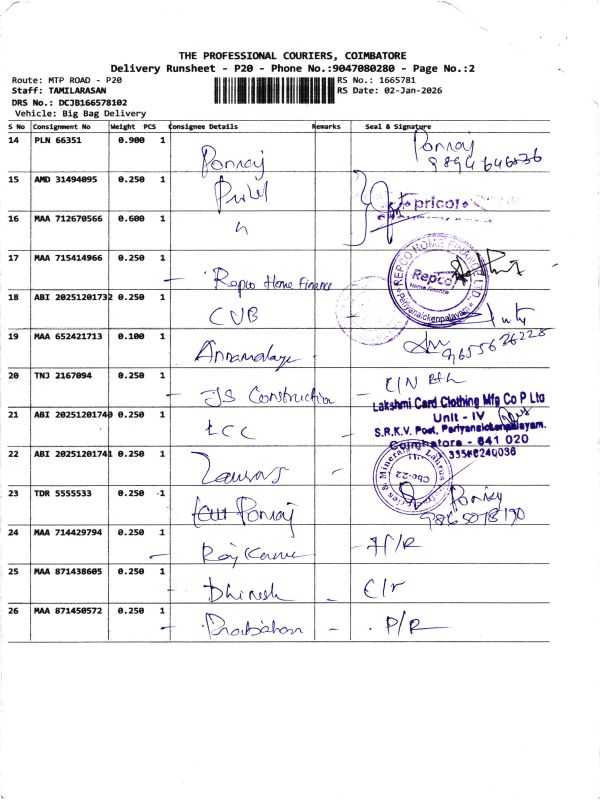 THE PROFESSIONAL COURIERS, COIMBATORE
Delivery Runsheet - P20 - Phone No.:9047080280 - Page No.:2
Route: MTP ROAD - P20 RS No.: 1665781
Staff: TAMILARASAN RS Date: 02-Jan-2026
DRS No.: DCJB166578102
Vehicle: Big Bag Delivery
S No Consignment No Weight PCS Consignee Details Remarks Seal & Signature
14 PLN 66351 0.900 1 Ponraj Ponraj
15 AMD 31494095 0.250 1 pricol
16 MAA 712670566 0.600 1
17 MAA 715414966 0.250 1 Repco Home Finance REPCO HOME FINANCE LTD. Repco Home Finance Periyanaickenpalayam
18 ABI 20251201732 0.250 1 CUB
19 MAA 652421713 0.100 1 Annamalaye 9655626228
20 TNJ 2167094 0.250 1 JS Construction
Lakshmi Card Clothing Mfg Co P Ltd
21 ABI 20251201740 0.250 1 LCC Unit - IV
S.R.K.V. Post, Periyanaickenpalayam.
Coimbatore - 641 020
22 ABI 20251201741 0.250 1 CBE-22
23 TDR 5555533 0.250 1 Ponraj Ponraj
24 MAA 714429794 0.250 1
25 MAA 871438605 0.250 1 Dhinesh
26 MAA 871450572 0.250 1 P/R